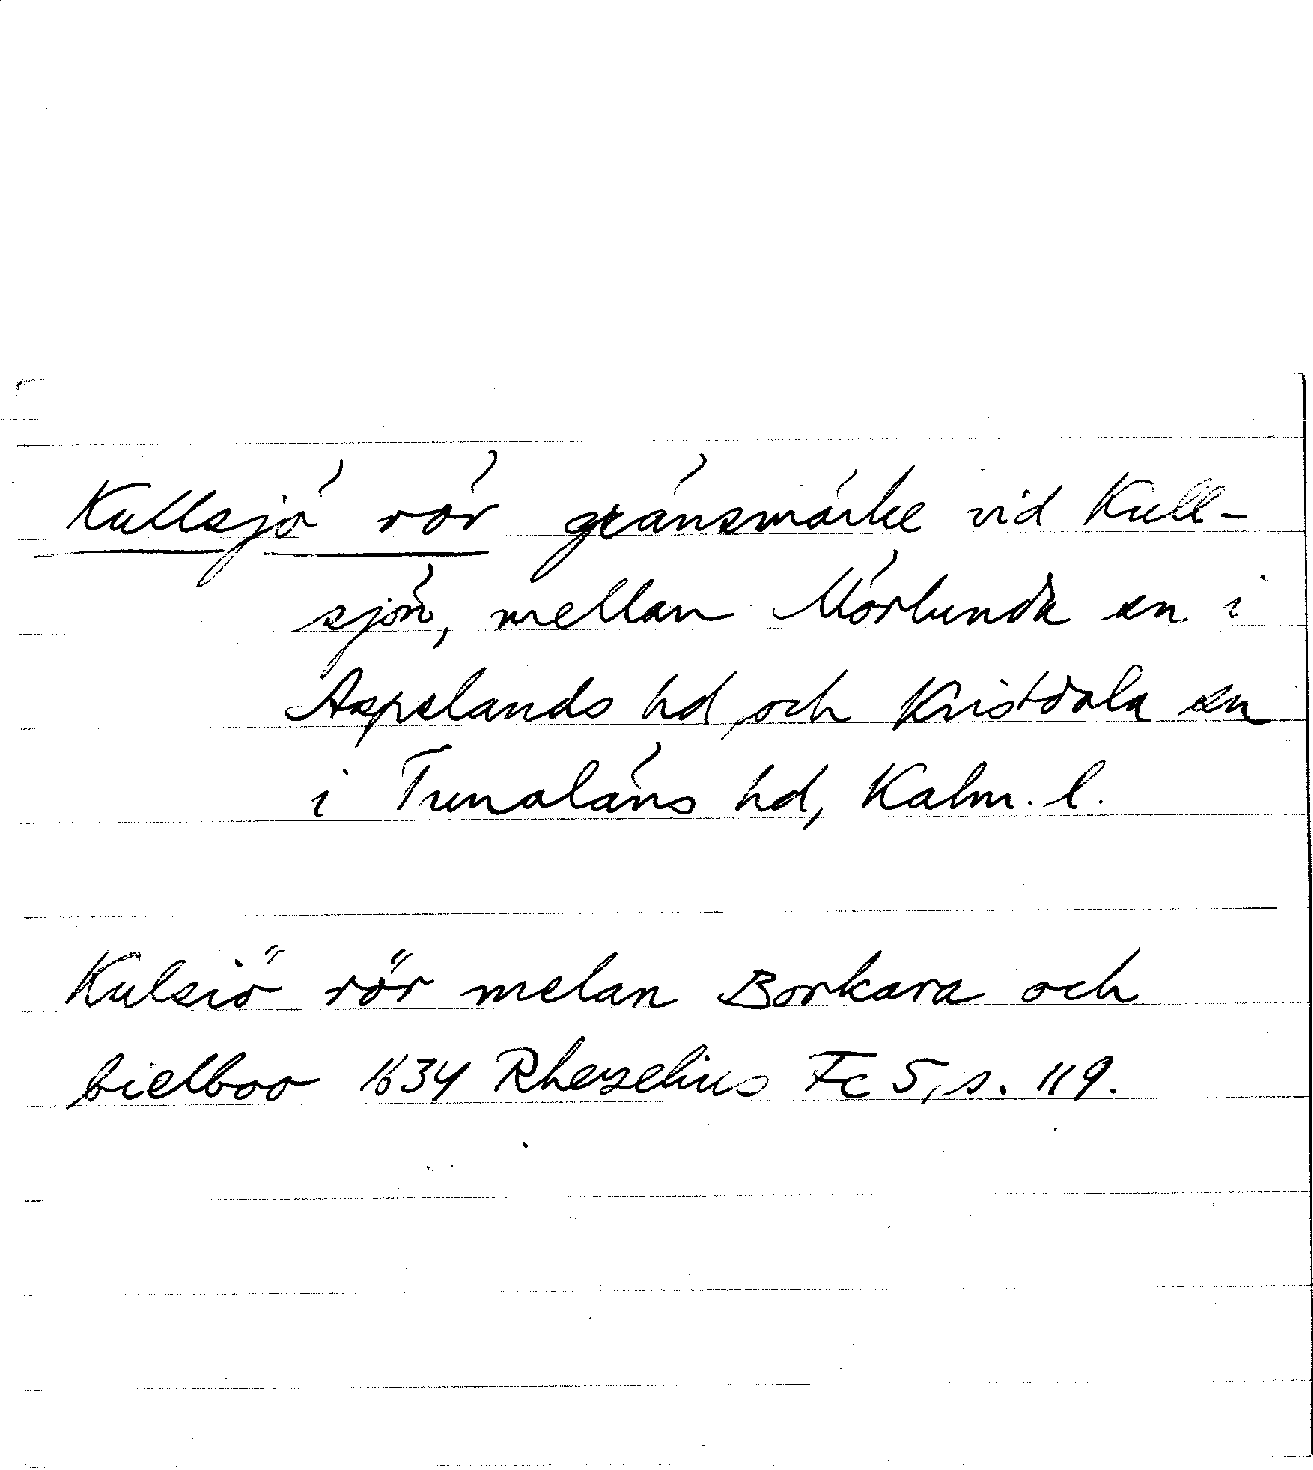 Kullsjö rör gränsmärke vid Kull-
sjön, mellan Mörlunda sn i
Aspelands hd och Kristdala sn
i Tunaläns hd, Kalm. l.
Kulsiö rör melan Borkara och
bielboo 1634 Rhezelius Fc 5, s. 119.